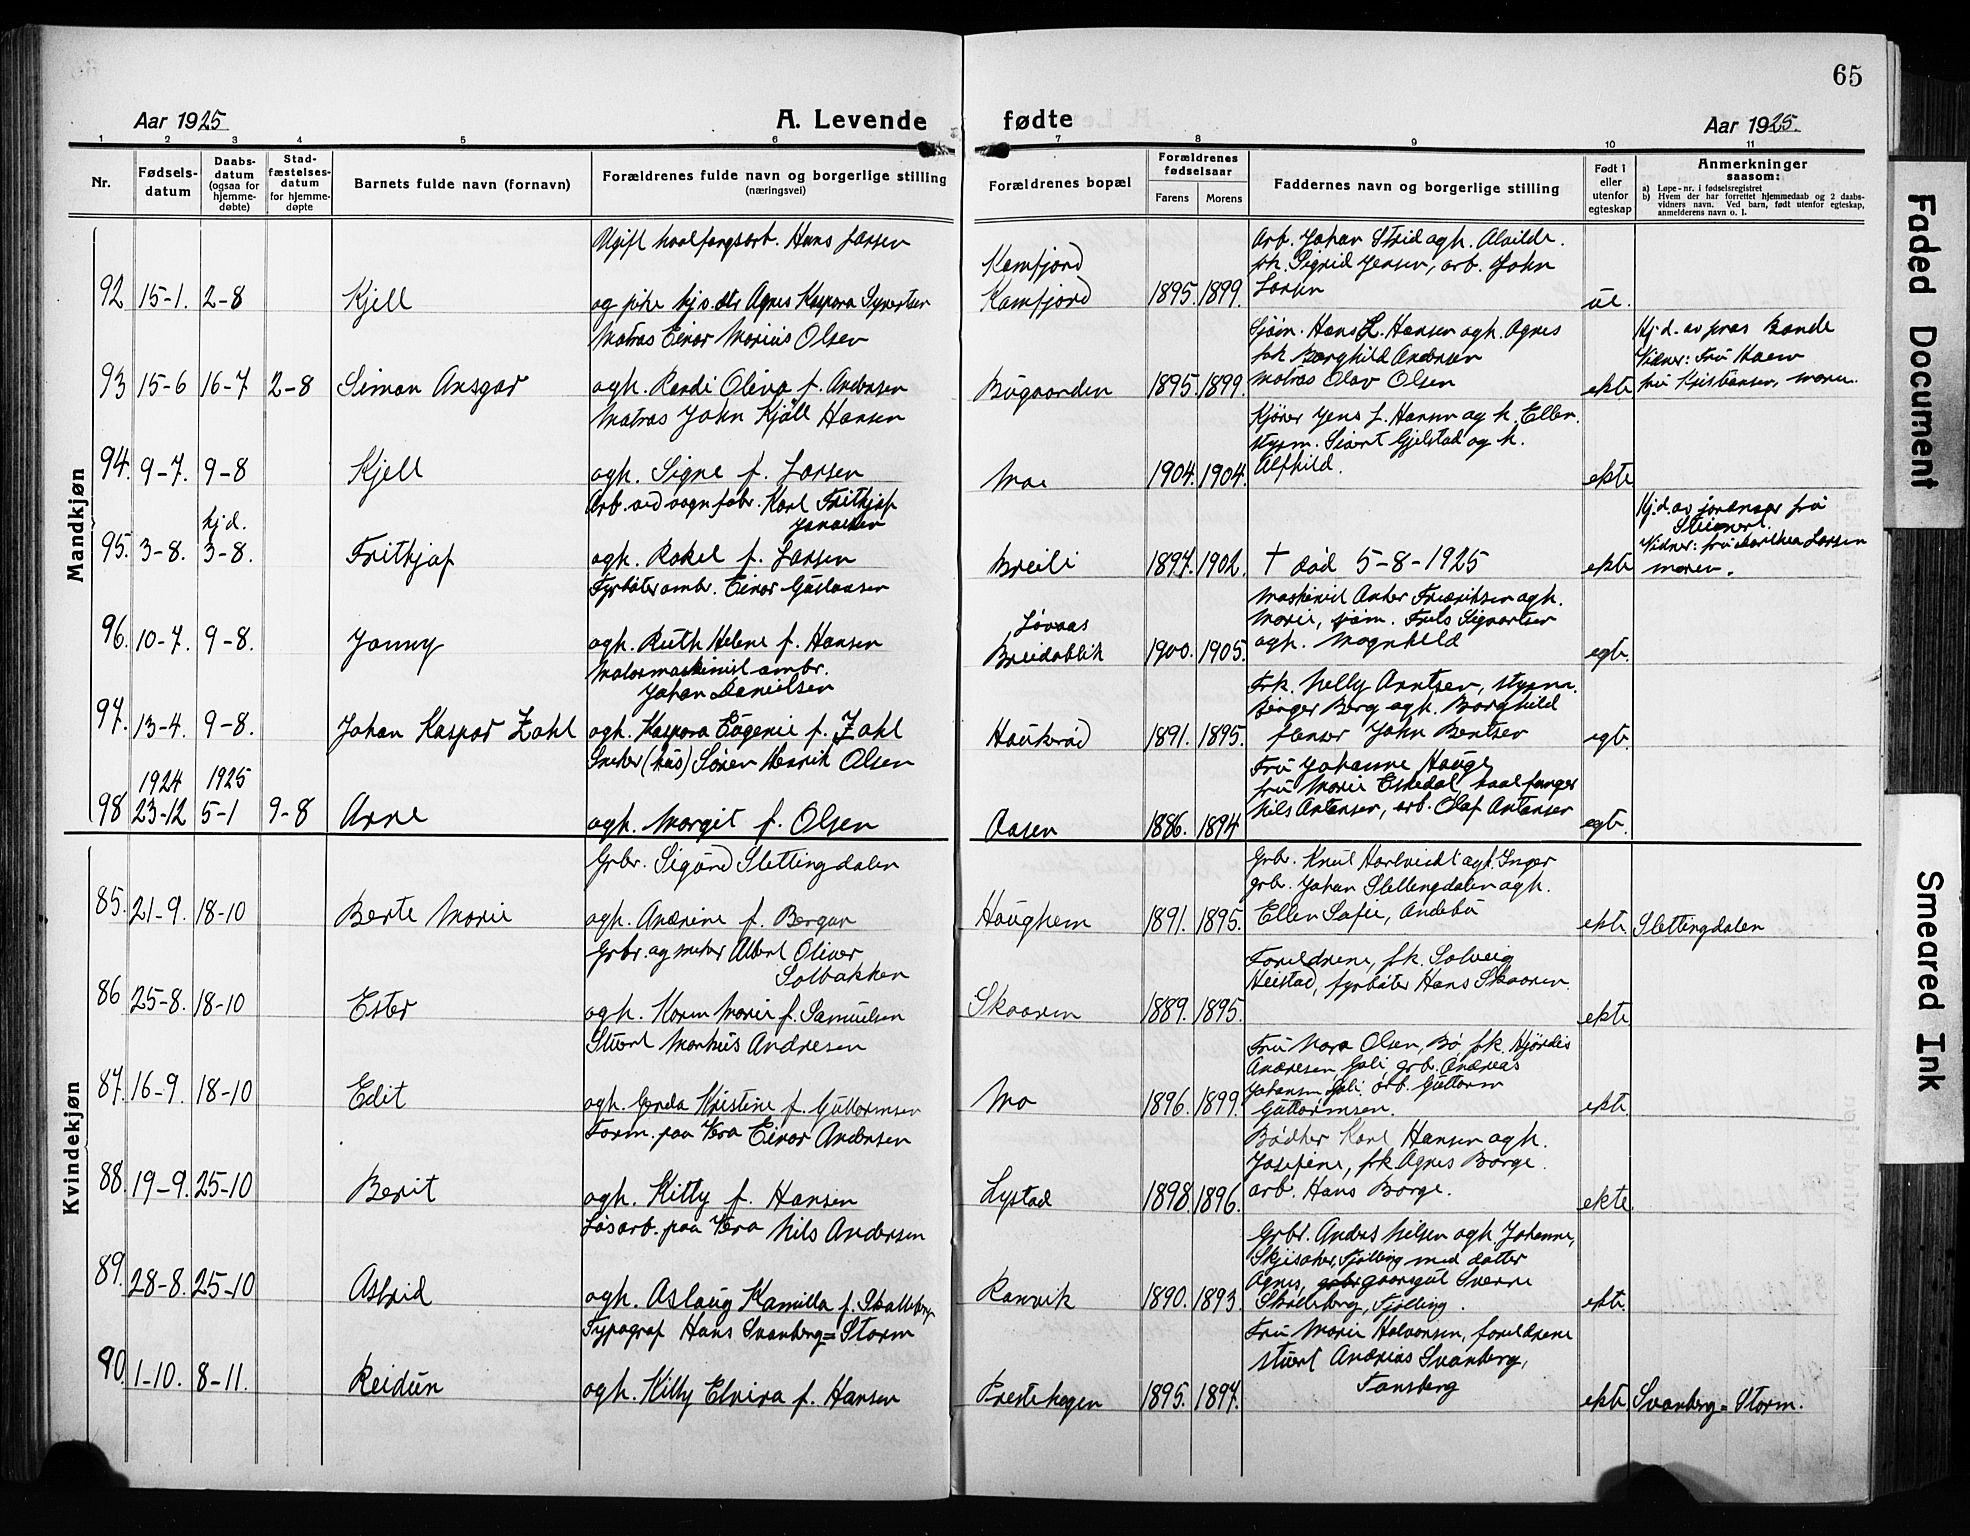 65
Aar 1925
A. Levende
fødte
Aar 1925.
1 2 3 4 5 6 7 8 9 10 11
Nr.
Fødsels-
datum
Daabs-
datum
(ogsaa for
hjemme-
døbte)
Stad-
fæstelses-
datum
for hjemme-
døpte
Barnets fulde navn (fornavn)
Forældrenes fulde navn og borgerlige stilling
(næringsvei)
Forældrenes bopæl
Forældrenes
fødselsaar
Farens
Morens
Faddernes navn og borgerlige stilling
Født i
eller
utenfor
egteskap
Anmerkninger
saasom:
a) Løpe-nr. i fødselsregistret
b) Hvem der har forrettet hjemmedaab og 2 daabs-
vidners navn. Ved barn, født utenfor egteskap,
anmelderens navn o. l.
Mandkjøn
92 15-1. 2-8 Kjell
Ugift hvalfangstarb. Hans Larsen
og pike hjs. dtr Agnes Kaspara Syvertsen
Kamfjord
Kamfjord
1895. 1899.
Arb. Johan Strid og h. Alvilde.
frk. Sigrid Jensen, arb. John
Larsen
ue.
93 15-6 16-7 2-8 Simon Ansgar
Matros Einar Marius Olsen
og h. Randi Oliva f. Andersen
Bugaarden
1895. 1899.
Sjøm. Hans L. Hansen og h. Agnes
frk. Borghild Andersen
matros Olav Olsen
ekte
Hj. d. av pres Bonde
Vidner: Fru Haem
fru Kristiansen, moren.
94. 9-7. 9-8 Kjell
Matros John Kjøll Hansen
og h. Signe f. Larsen
Moe
1904. 1904.
Kjører Jens L. Hansen og h. Ellen.
styrm. Sivert Gjelstad og h.
Alfhild.
ekte
95. 3-8. hj. d. 3-8. Frithjof
Arb. ved vognfabr. Karl Frithjof
Jonassen
og h. Rakel f. Larsen
Breili
1897. 1902.
† død 5-8-1925
ekte
Hj. d. av jordmor fru
Steinert.
Vidner: fru Dorthea Larsen
moren.
96. 10-7. 9-8. Jonny
Fyrbøter ombr. Einar Gustavsen
og h. Ruth Helene f. Hansen
Løvaas
Breidablik
1900. 1905.
Maskinist Anker Fredriksen og h.
Marie, sjøm. Frits Sigvartsen
og h. Magnhild
egt.
97. 13-4. 9-8. Johan Kaspar Zahl
Motormaskinist ombr.
Johan Danielsen
og h. Kaspara Eugenie f. Zahl
Haukerød
1891. 1895.
Frk. Nelly Arntsen, styrm.
Birger Berg og h. Borghild
flenser John Bentsen
egt.
98 1924 23-12 1925 5-1 9-8 Arne
Snekker (hus) Søren Henrik Olsen
og h. Margit f. Olsen
Aasen
1886. 1894
Fru Johanne Hauge
fru Marie Eskedal, hvalfanger
Nils Antonsen, arb. Olaf Antonsen
egt.
Kvindekjøn
85. 21-9. 18-10 Berte Marie
Grbr. Sigurd Slettingdalen
og h. Andrine f. Bergan
Haughem
1891. 1895.
Grb. Knut Hartveidt og h. Inger
grb. Johan Slettingdalen og h.
Ellen Sofie, Andebu
ekte
Slettingdalen
86 25-8. 18-10 Ester
Grbr. og snekker Albert Oliver
Solbakken
og h. Karen Marie f. Samuelsen
Skaaren
1889. 1895.
Foreldrene, frk. Solveig
Heistad, fyrbøter Hans Skaaren.
ekte
87. 16-9. 18-10 Edit
Stuert Markus Andresen
og h. Gerda Kristine f. Guttormsen
Mo
1896. 1899.
Fru Nora Olsen, Bø frk. Hjørdis
Andresen, Goli, grb. Andreas
Johansen Goli, arb. Guttorm
Guttormsen.
ekte
88. 19-9. 25-10 Berit
Form. paa Vera Einar Andersen
og h. Kitty f. Hansen
Lystad
1898. 1896.
Bødker Karl Hansen og h.
Josefine, frk Agnes Borge.
arb. Hans Borge.
ekte.
89. 28-8. 25-10 Astrid
Løsarb. paa Vera Nils Andersen
og h. Aslaug Kamilla f. Skalleberg
Ranvik
1890. 1893
Grbr. Anders Nilsen og h. Johanne,
Skjisaker, Tjølling med datter
Agnes, gaardsgut Sverre
Skalleberg, Tjølling.
ekte.
90. 1-10. 8-11. Reidun
Typograf Hans Svanberg=Storm
og h. Kitty Elvira f. Hansen
Prestehagen
1895. 1897.
Fru Marie Halvorsen, foreldrene
stuert Andreas Svanberg,
Tønsberg
ekte
Svanberg=Storm.
Faded Document
Smeared Ink